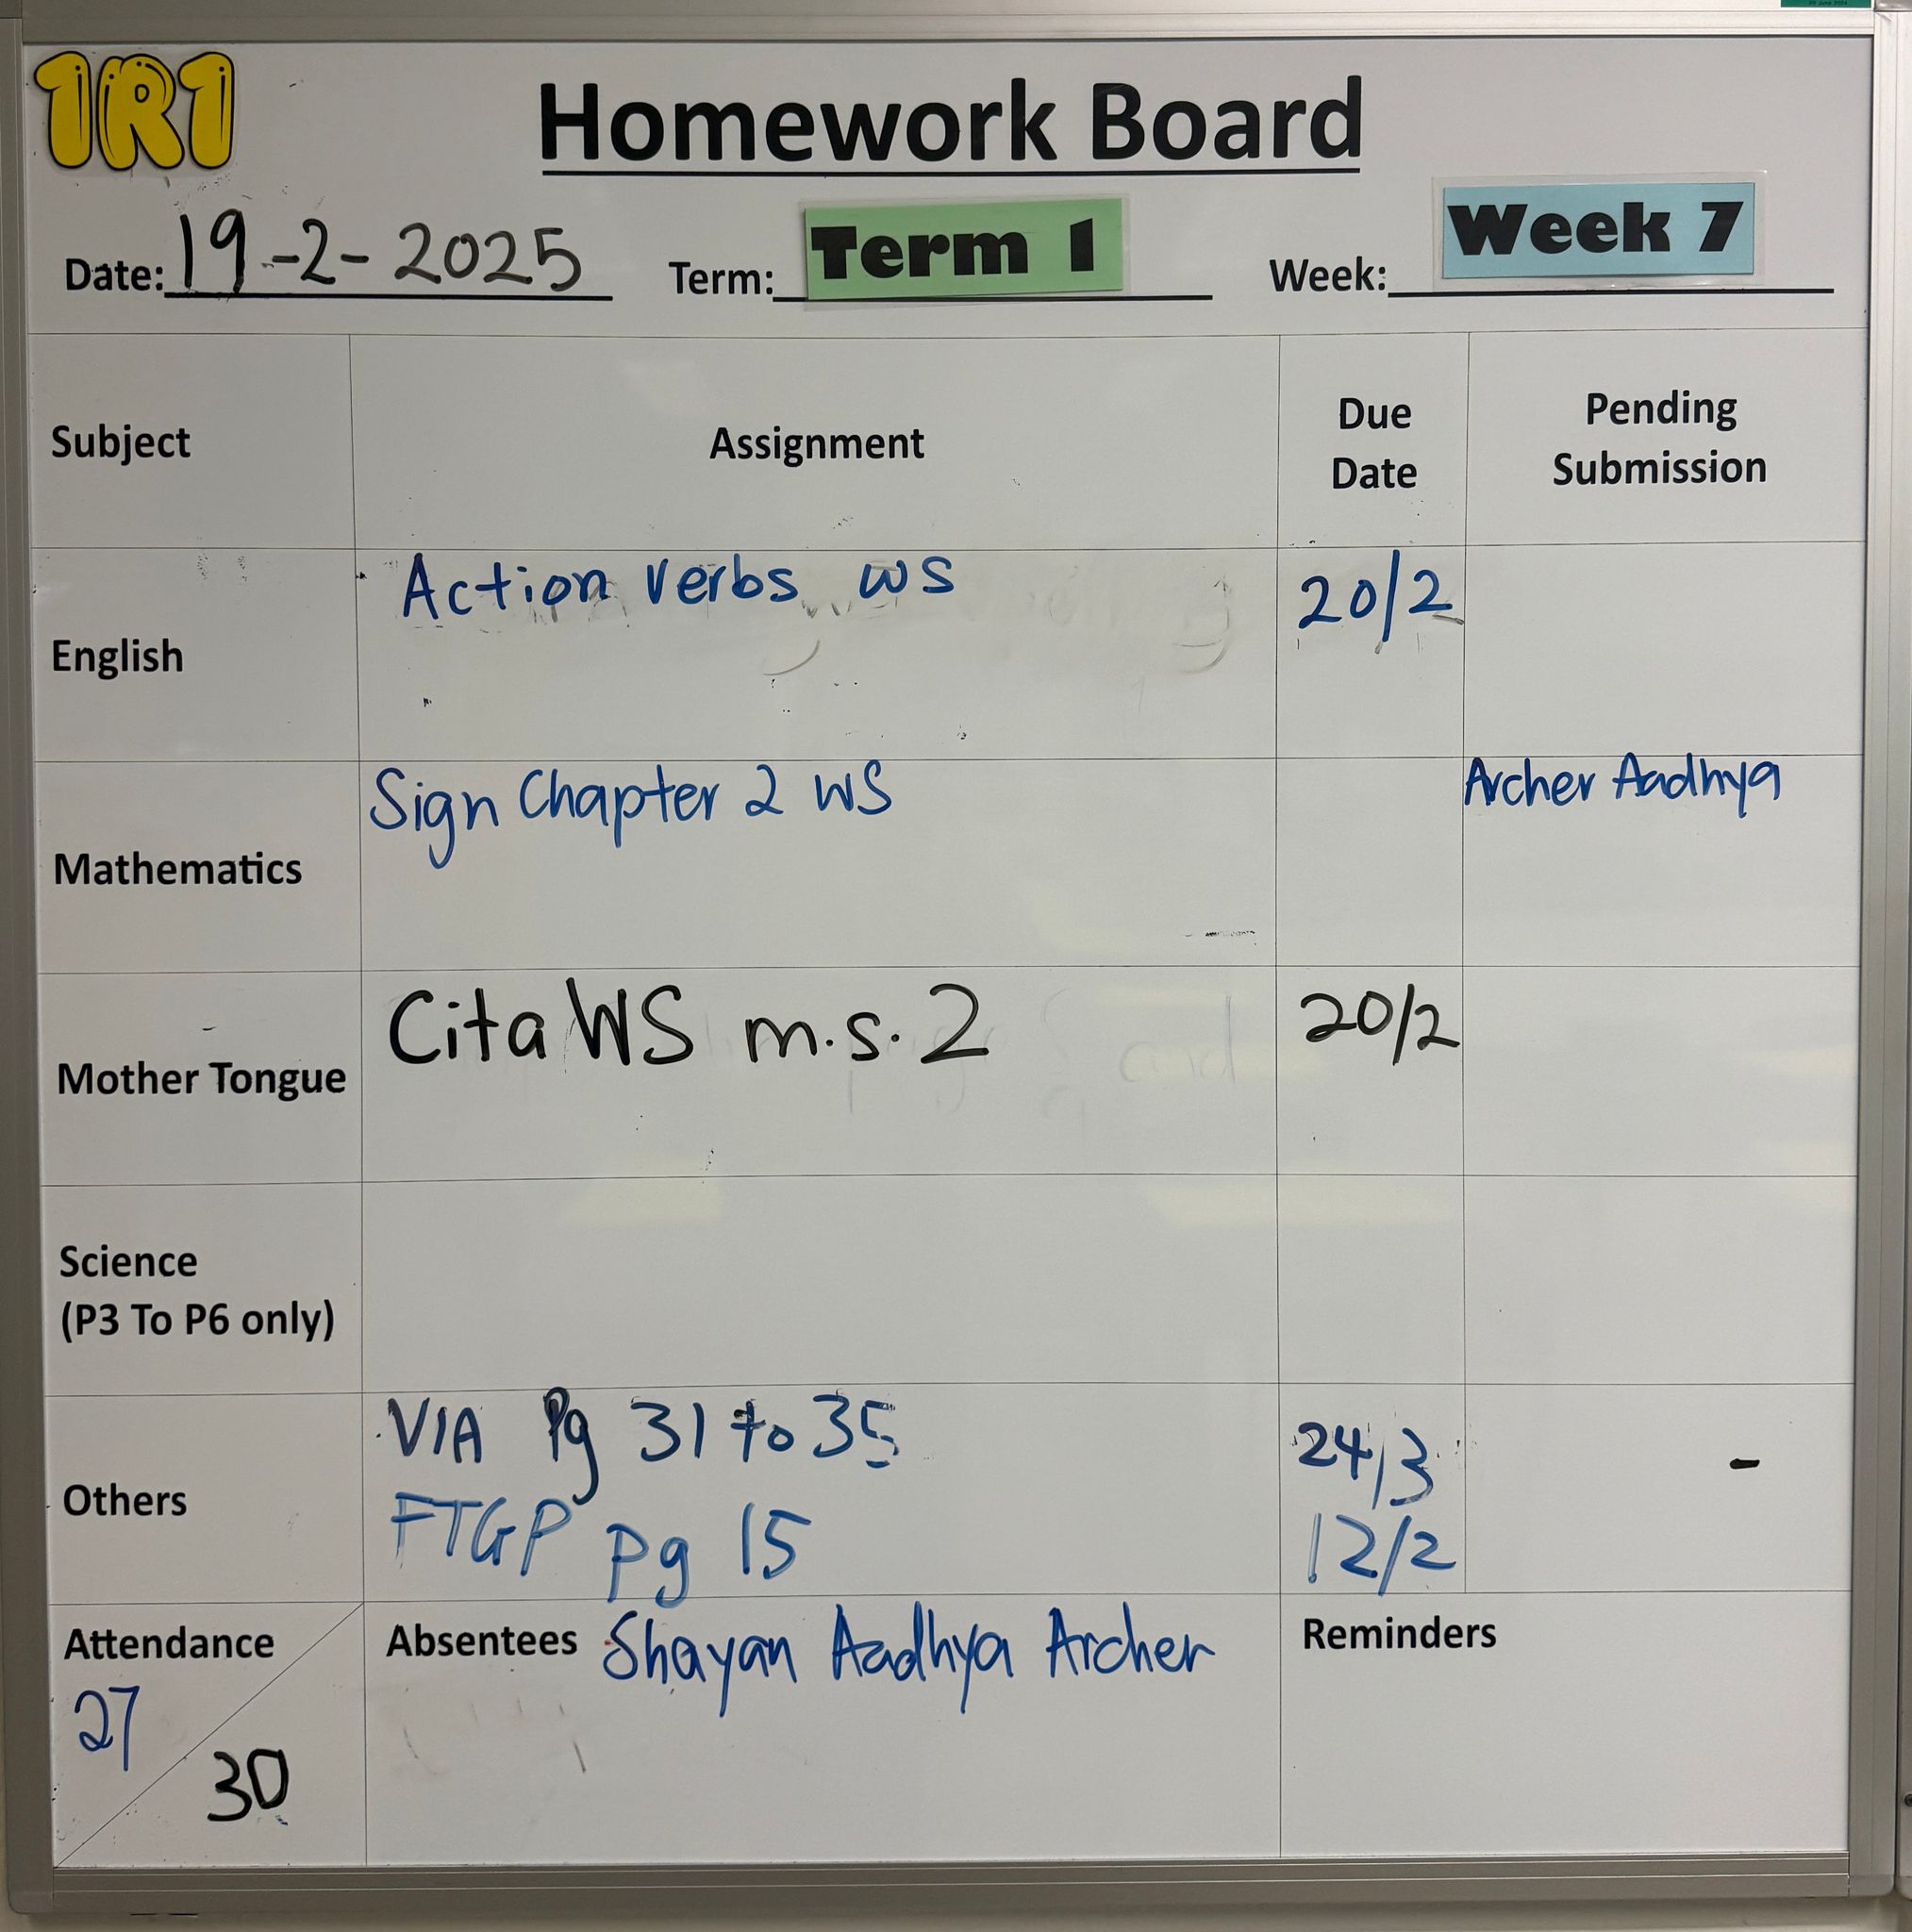 1R1
Homework Board
Date: 19-2-2025 Term: Term 1 Week: Week 7
Subject Assignment Due Date Pending Submission
English Action verbs ws 20/2
Mathematics Sign Chapter 2 WS Archer Aadhya
Mother Tongue Cita WS m.s. 2 20/2
Science
(P3 To P6 only)
Others VIA Pg 31 to 35 24/3 -
FTGP pg 15 12/2
Attendance Absentees Shayan Aadhya Archer Reminders
27
30